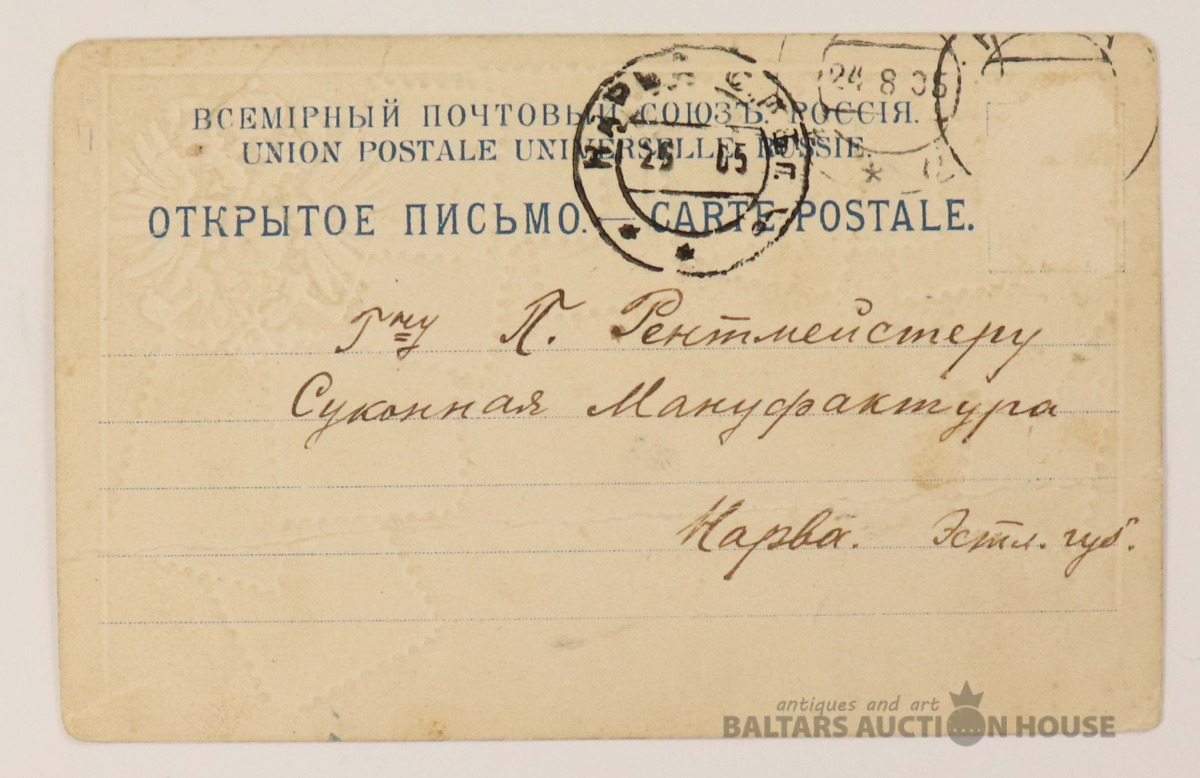 ВСЕМІРНЫЙ ПОЧТОВЫЙ СОЮЗЪ. РОССІЯ.
UNION POSTALE UNIVERSELLE. RUSSIE.
ОТКРЫТОЕ ПИСЬМО. — CARTE POSTALE.
24 8 05
НАРВА
25 05
Гну П. Рентмейстеру
Суконная Мануфактура
Нарва. Эстл. губ.
antiques and art
BALTARS AUCTION HOUSE